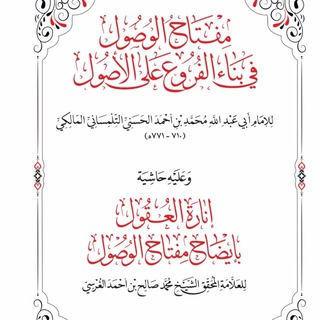 مِفْتَاحُ الْوُصُولِ
فِي بِنَاءِ الْفُرُوعِ عَلَى الْأُصُولِ
لِلْإِمَامِ أَبِي عَبْدِ اللهِ مُحَمَّدِ بْنِ أَحْمَدَ الْحَسَنِيِّ التِّلِمْسَانِيِّ الْمَالِكِيِّ
(٧١٠ - ٧٧١هـ)
وَعَلَيْهِ حَاشِيَة
إِنَارَةُ الْعُقُولِ
بِإِيضَاحِ مِفْتَاحِ الْوُصُولِ
لِلْعَلَّامَةِ الْمُحَقِّقِ الشَّيْخِ مُحَمَّد صَالِح بْنِ أَحْمَدَ الْغَرْسِيِّ